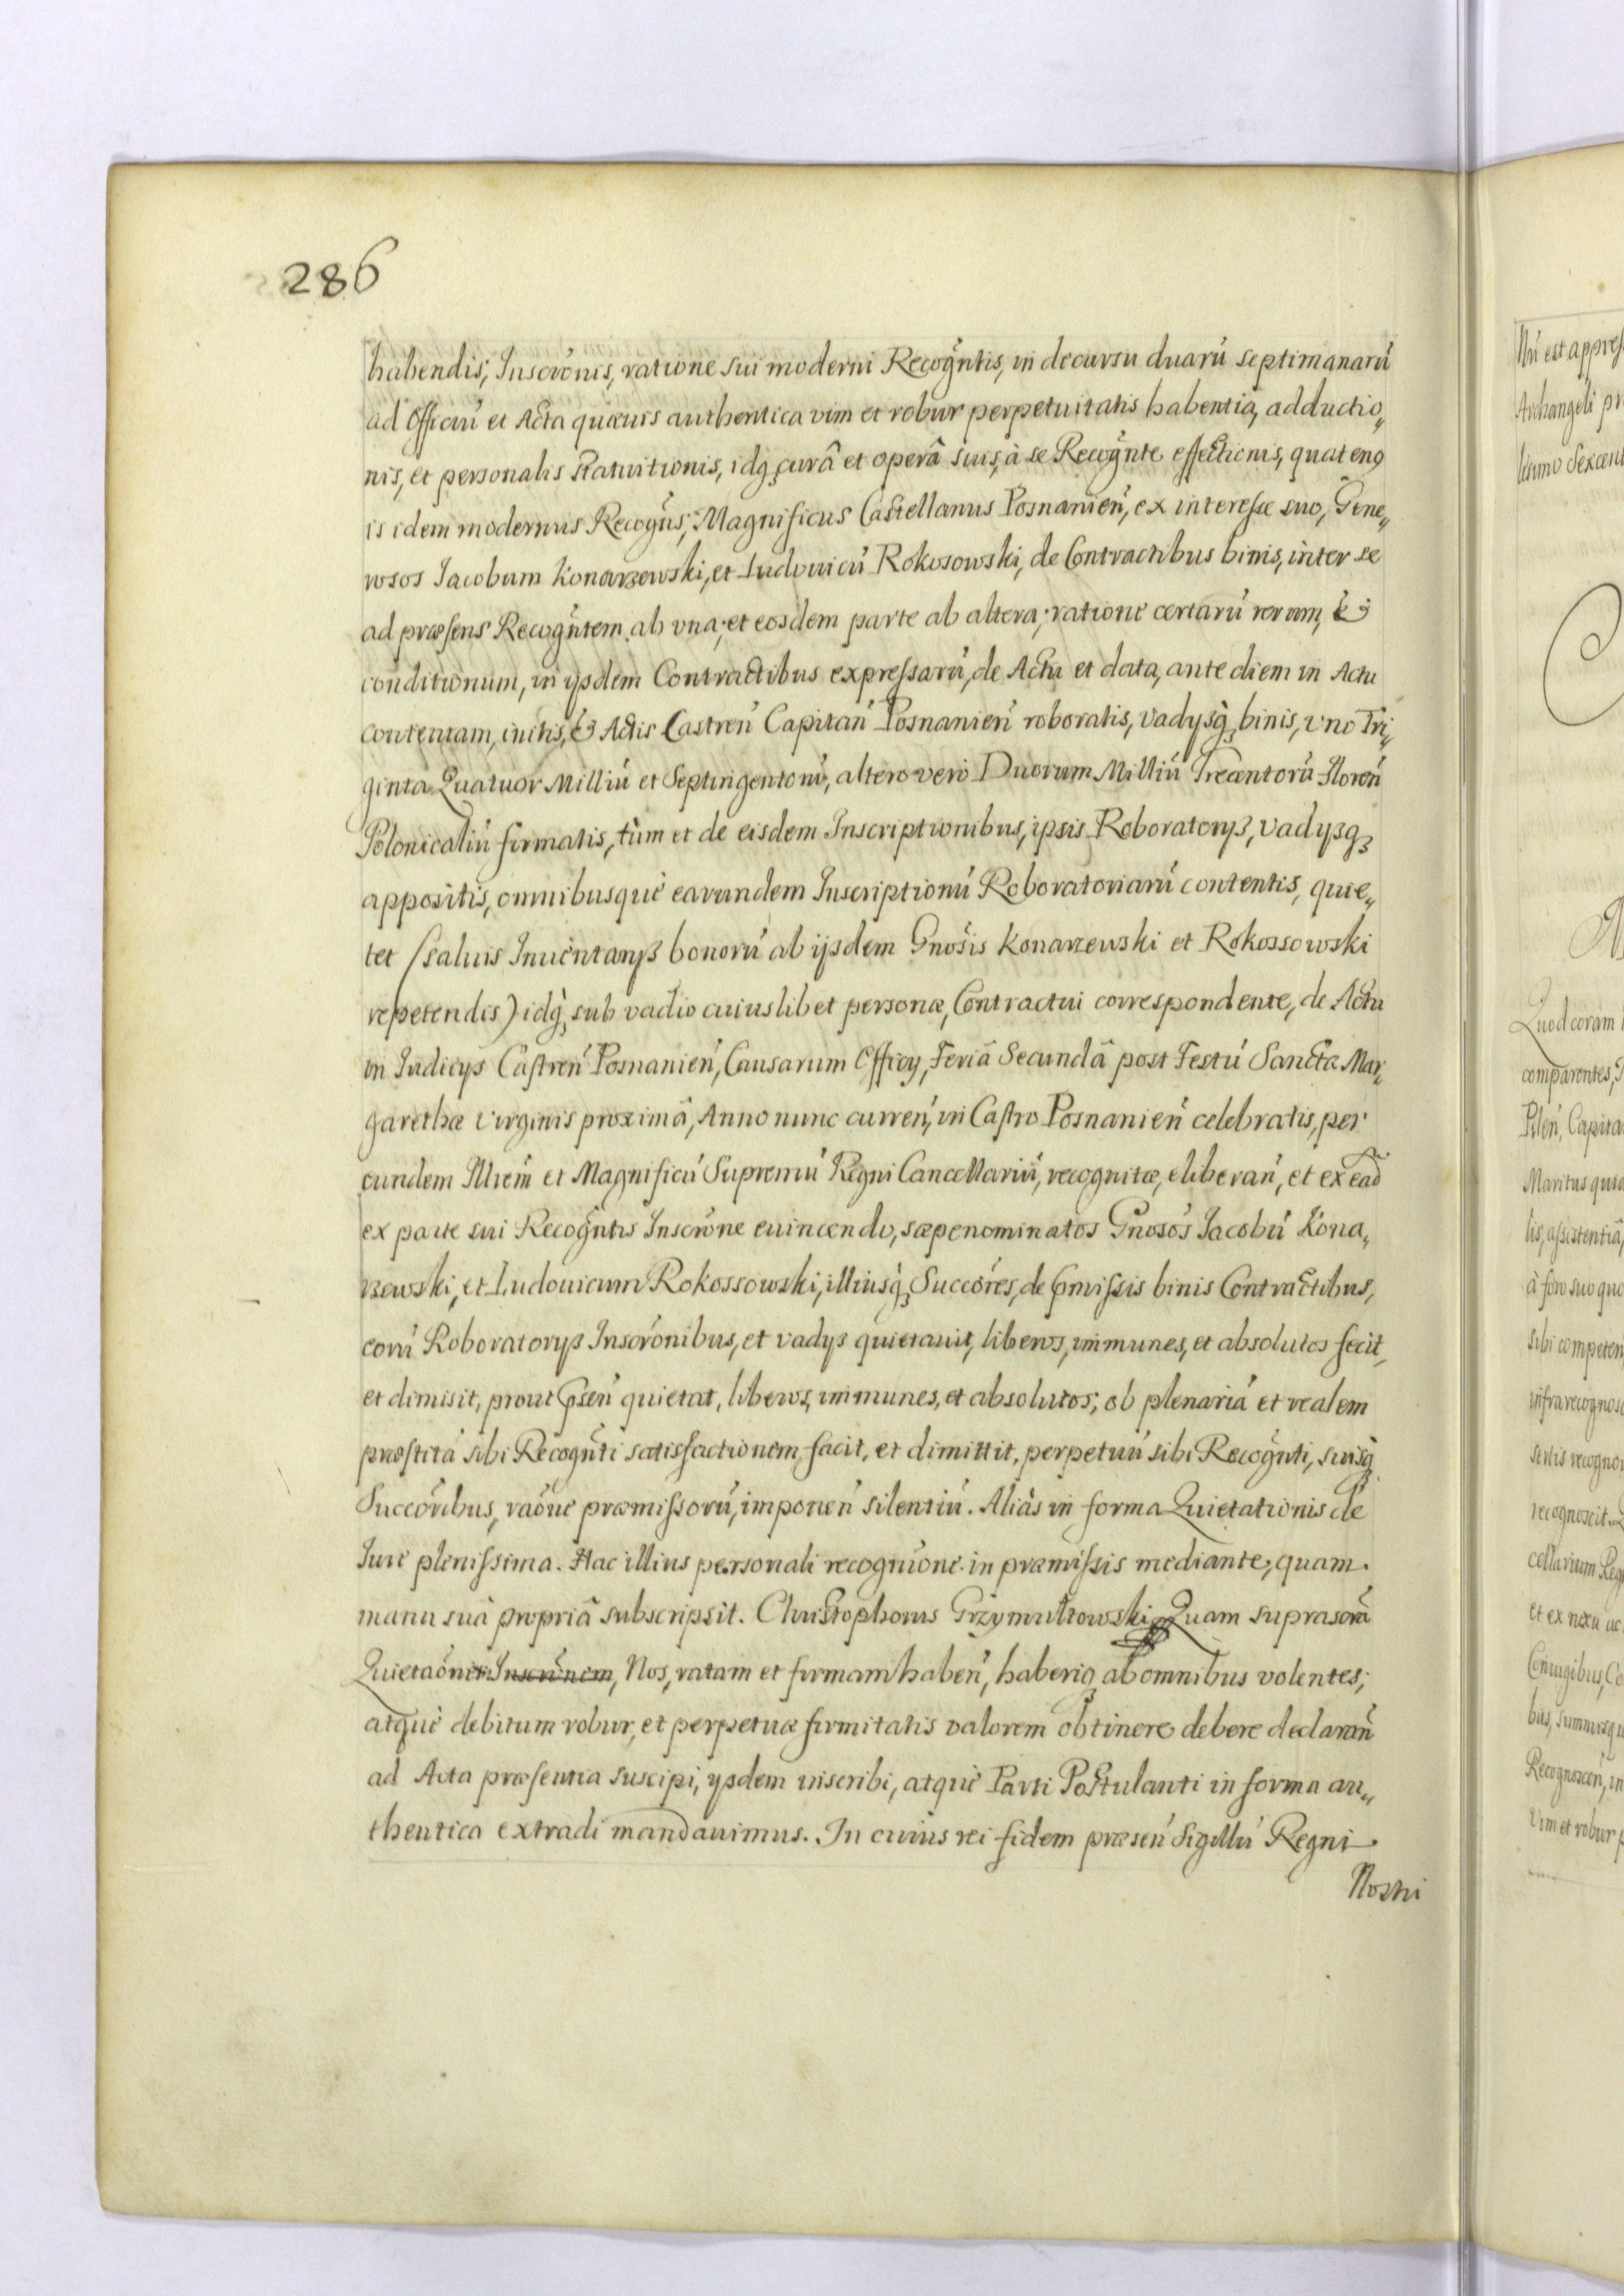 286
habendis; Inscrõnis, ratione sui moderni Recogñtis, in decursu duarũ septimanarũ
ad Officiũ et Acta quæuis authentica vim et robur perpetuitatis habentia, adductio„
nis, et personalis statuitionis, idq̨ curâ et operâ suis, à se Recogñte effectionis, quatenꝯ
is idem modernus Recogñs; Magnificus Castellanus Posnanieñ, ex interesse suo, Gene„
rosos Jacobum Konarzewski, et Ludouicũ Rokosowski, de Contractibus binis, inter se
ad præsens Recogñtem ab vna; et eosdem parte ab altera; ratione certarũ rerum, &
conditionum, in ijsdem Contractibus expressarũ, de Actu et data, ante diem in Actu
contentam, initis, & Actis Castreñ Capitañ Posnanieñ roboratis, vadijsq̨ binis, vno Tri„
ginta Quatuor Milliũ et Septingentorũ, altero verò Duorum Milliũ Trecentorũ Floreñ
Polonicaliũ firmatis, tùm et de eisdem Inscriptionibus, ipsis Roboratorijs, vadijsq̨
appositis, omnibusquè earundem Inscriptionũ Roboratoriarũ contentis, quie„
tet (saluis Inuentarijs bonorũ ab ijsdem Gnosis Konarzewski et Rokossowski
repetendis) idq̨ sub vadio cuiuslibet personæ, Contractui correspondente, de Actu
in Iudicijs Castreñ Posnanieñ, Causarum Officij, Feriâ Secundâ post Festũ Sanctæ Mar„
garethæ Virginis proximâ, Anno nunc curreñ, in Castro Posnanieñ celebratis, per
eundem Illrem̃ et Magnificũ Supremũ Regni Cancellariũ, recognitæ, eliberañ, et ex ead̃
ex parte sui Recogñtis Inscrõne euincendo, sæpenominatos Gnosos Jacobũ Kona„
rzewski, et Ludouicum Rokossowski, illiusq̨ Succores, de p̃missis binis Contractibus,
eorũ Roboratorijs Inscrõnibus, et vadijs quietauit, liberos, immunes, et absolutos fecit,
et dimisit, prout p̃señ quietat, liberos, immunes, et absolutos, ob plenariã et realem
præstitã sibi Recogñti satisfactionem facit, et dimittit, perpetuũ sibi Recogñti, suisq̨
Succoribus, raõne præmissorũ, imponeñ silentiũ. Aliàs in forma Quietationis de
Iure plenissima. Hac illius personali recognione in præmissis mediante, quam
manu suâ propriâ subscripsit. Christophorus Grzymułtowski Quam suprascrã
Quietaõnis Inscrõnem, Nos, ratam et firmam habeñ, haberiq̨ ab omnibus volentes;
atquè debitum robur, et perpetuæ firmitatis valorem obtinere debere declarañ
ad Acta præsentia suscipi, ijsdem inscribi, atquè Parti Postulanti in forma au„
thentica extradi mandauimus. In cuius rei fidem præseñ Sigillũ Regni
Nostri